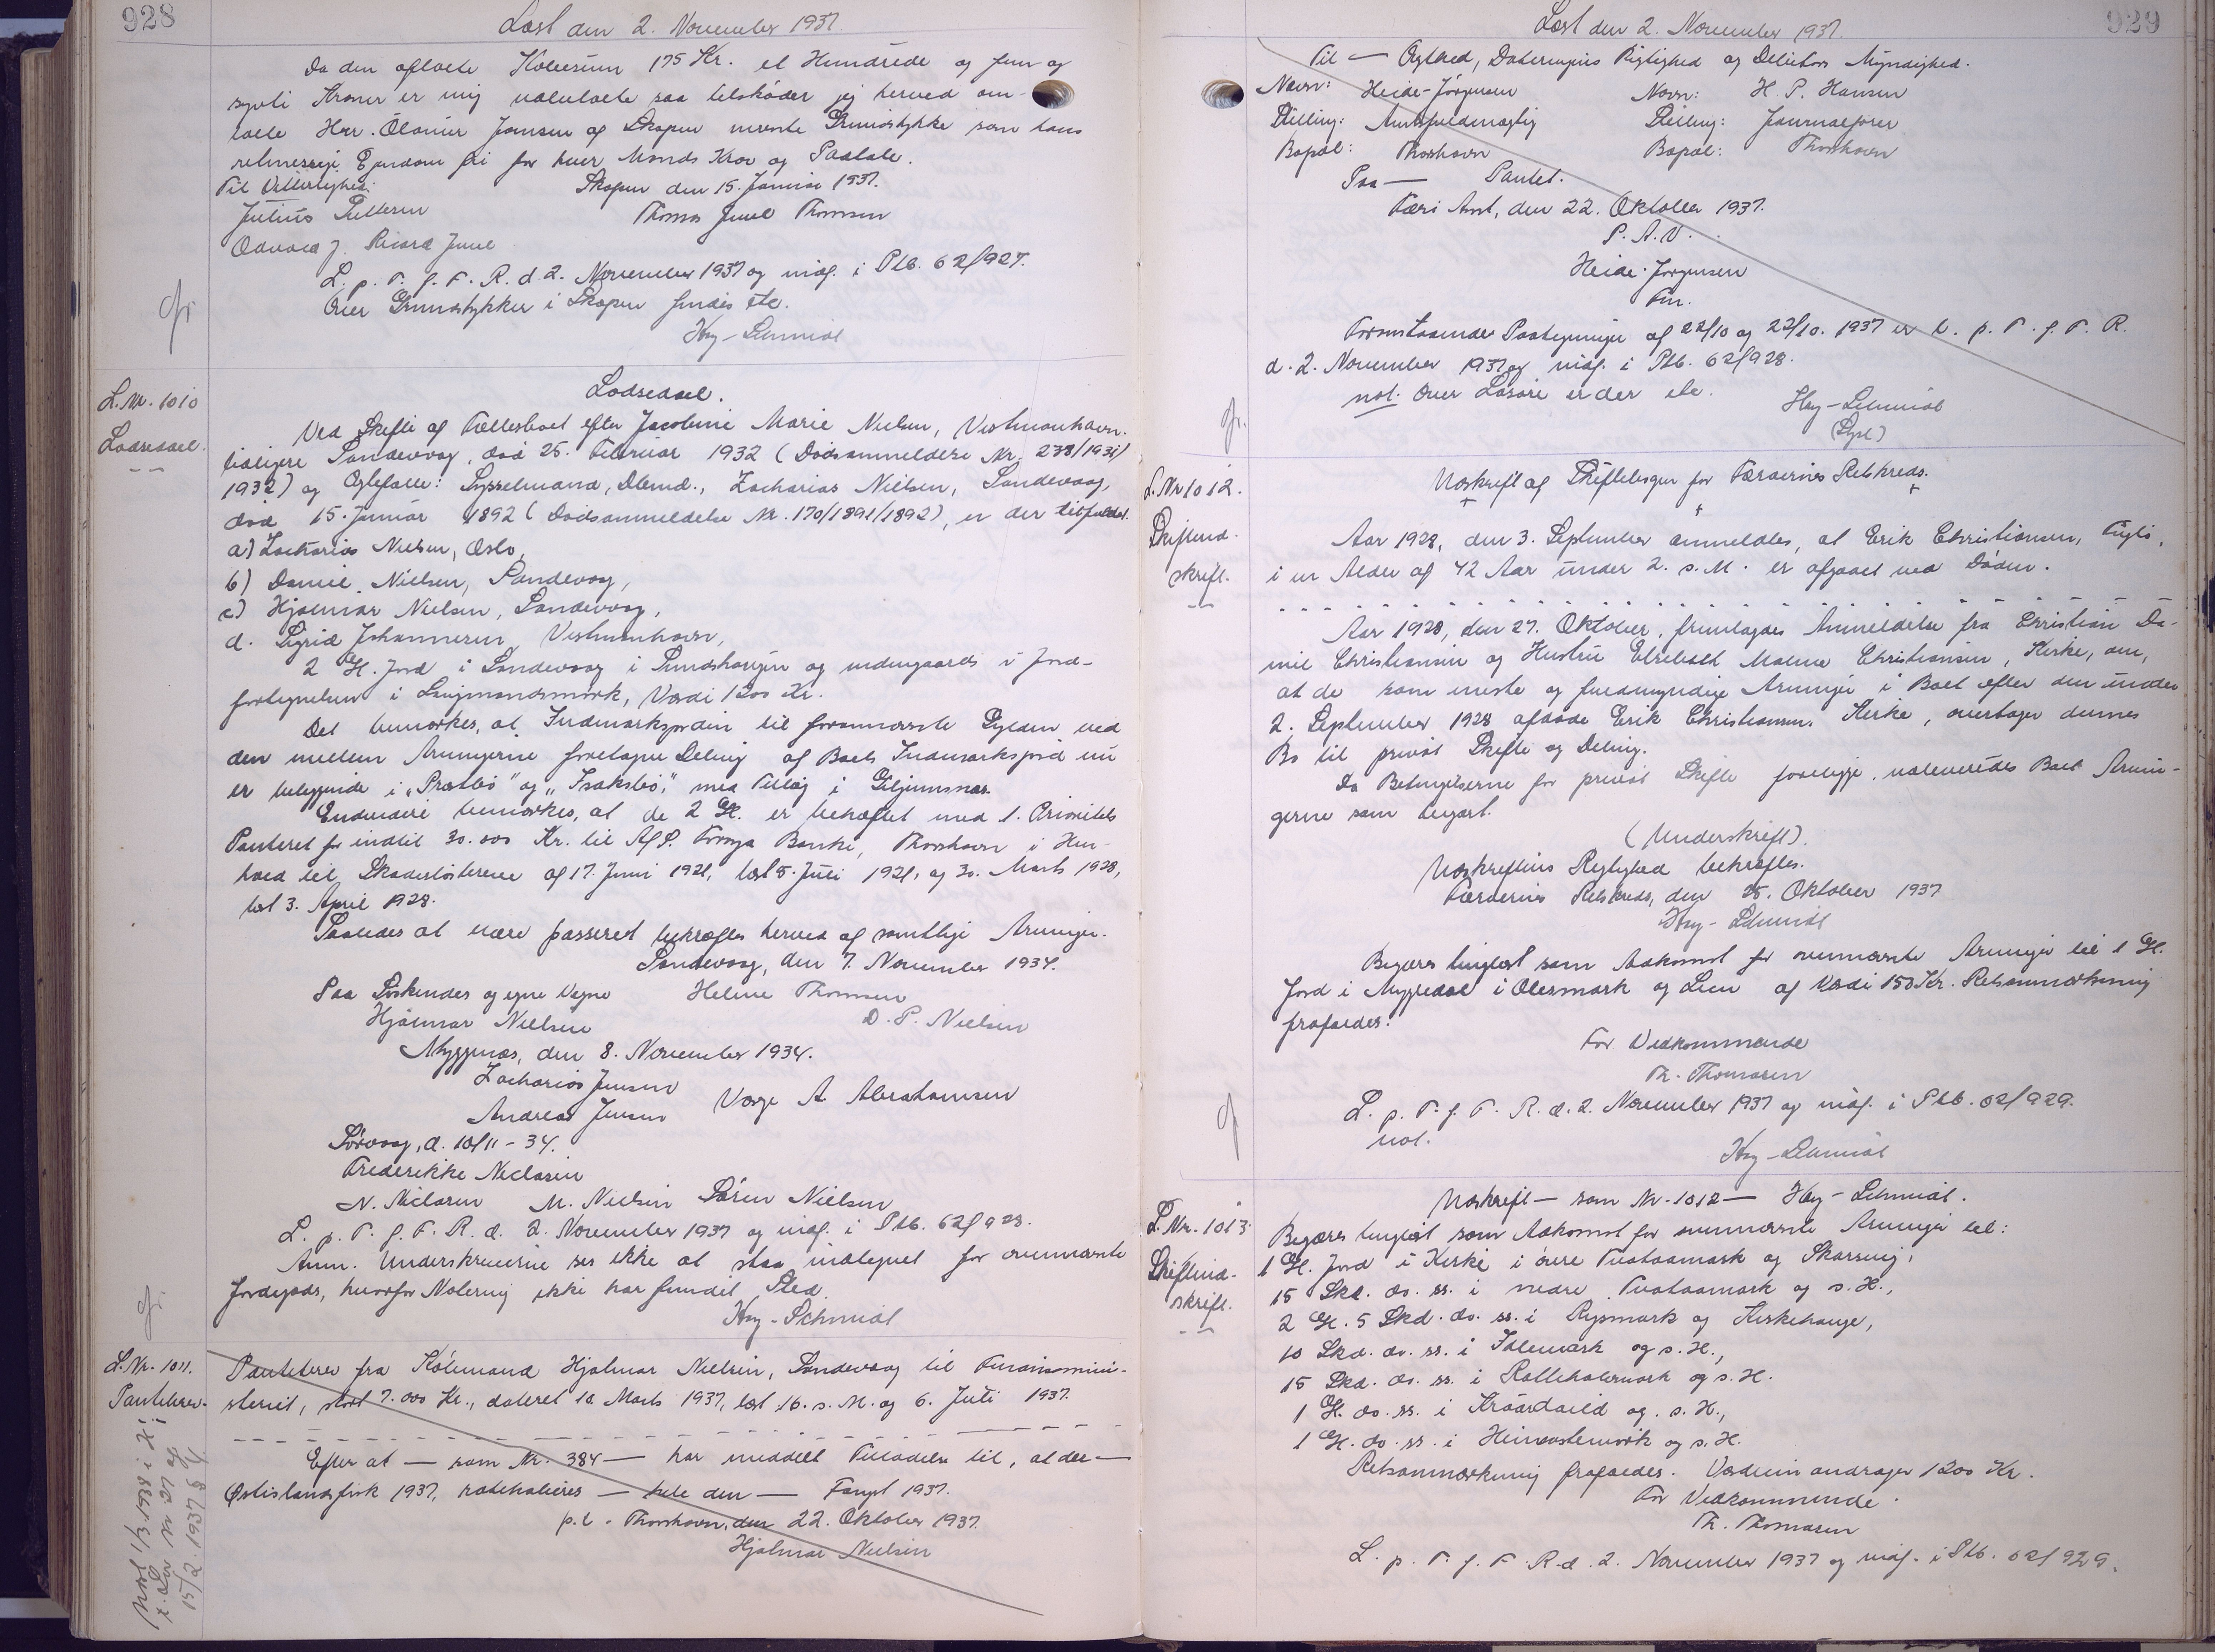 928
Læst den 2. November 1937.
Da den aftalte Købesum 175 Kr. et Hundrede og fem og
syvti Kroner er mig udbetalte saa tilskøder jeg herved om-
talte Herr. Ólavur Joensen af Skopun nævnte Grundstykke som hans
retmessige Ejendom fri for hver Mands Krav og Paatale.
Til Vitterlighed: Skopun den 15. Januar 1937.
Julius Pettersen Thomas Juul Thomsen
Oddvald J. Rivard Juul
L. p. T. f. F. R. d. 2. November 1937 og indf. i Ptb. 62/927.
Over Grundstykker i Skopun findes etc.
Høy-Schmidt
gr.
L. Nr. 1010
Lodseddel.
Lodseddel.
Ved Skifte af Fællesboet efter Jacobine Marie Nielsen, Vestmanhavn,
tidligere Sandevaag, død 25. Februar 1932 (Dødsanmeldelse Nr. 238/1931/
1932) og Ægtefælle: Sysselmand, Dbmd., Zacharias Nielsen, Sandevaag,
død 15. Januar 1892 (Dødsanmeldelse Nr. 170/1891/1892), er der tilfaldet.
a) Zacharias Nielsen, Oslo,
b) Daniel Nielsen, Sandevaag,
c) Hjalmar Nielsen, Sandevaag,
d. Sigrid Johannesen, Vestmanhavn,
2 Gl. Jord i Sandevaag i Sundshaugen og undergaards i Jord-
fortegnelsen i Laugmandsmørk, Værdi 1200 Kr.
Det bemærkes, at Indmarksjorden til forannævnte Gylden ved
den mellem Arvingerne foretagne Deling af Boets Indmarksjord nu
er beliggende i "Prætbø" og "Isaksbø", med Tillæg i Giljumsnes.
Endvidere bemærkes, at de 2 Gl. er behæftet med 1. Prioritets
Panteret for indtil 30.000 Kr. til A/S. Føroya Banki, Thorshavn i Hen-
hold til Skadesløsbreve af 17. Juni 1921, læst 5. Juli 1921, og 30. Marts 1928,
læst 3. April 1928.
Saaledes at være passeret bekræftes herved af samtlige Arvinger.
Sandevaag, den 7. November 1934.
Paa Søskendes og egne Vegne Heline Thomsen
Hjalmar Nielsen D. P. Nielsen
Myggenæs, den 8. November 1934.
Zacharias Jensen
Andreas Jensen Værge A Abrahamsen
Sørvaag, d. 10/11-34.
Frederikke Niclasen
N. Niclasen M. Nielsen Søren Nielsen
L. p. T. f. F. R. d. 2. November 1937 og indf. i Ptb. 62/928.
Anm. Underskriverne ses ikke at staa indtegnet for ovennævnte
Jordgods, hvorfor Notering ikke har fundet Sted.
Høy-Schmidt
gr.
L. Nr. 1011.
Pantebrev.
Pantebrev fra Købmand Hjalmar Nielsen, Sandevaag til Finansmini-
steriet, stort 7.000 Kr., dateret 10. Marts 1937, læst 16. s. M. og 6. Juli 1937.
Efter at — som Nr. 384 — har meddelt Tilladelse til, at der —
Østislandsfisk 1937, — hele den — Fangst 1937.
p.t. Thorshavn, den 22. Oktober 1937.
Hjalmar Nielsen
1/3 1938
Nr 27 af
15/2. 1937
929
Læst den 2. November 1937.
Til — Ægthed, Dateringens Rigtighed og Debitors Myndighed.
Navn: Heide-Jørgensen Navn: H. P. Hansen
Stilling: Amtsfuldmægtig Stilling: Journalfører
Bopæl: Thorshavn Bopæl: Thorshavn
Paa — Pantet.
Færø Amt, den 22. Oktober 1937.
P. A. V.
Heide-Jørgensen
Fm.
Foranstaaende Paategninger af 22/10 og 22/10. 1937 er L. p. T. f. F. R.
d. 2. November 1937 og indf. i Ptb. 62/928.
not. Over Løsøre er der etc.
Høy-Schmidt
(Sysl)
gr.
L. Nr 1012.
Skifteud-
skrift.
Udskrift af Skifteboger for Færøernes Retskreds.
Aar 1928, den 3. September anmeldtes, at Erik Christiansen, Fuglø,
i en Alder af 42 Aar under 2. s. M. er afgaaet ved Døden.
Aar 1928, den 27. Oktober, fremlagdes Anmeldelse fra Christian Da-
niel Christiansen og Hustru Elsebeth Malene Christiansen, Kirke, om,
at de som eneste og fuldmyndige Arvinger i Boet efter den under
2. September 1928 afdøde Erik Christiansen, Kirke, overtager dennes
Bo til privat Skifte og Deling.
Da Betingelserne for privat Skifte foreligger, udleveredes Boet Arvin-
gerne som begært.
(Underskrift).
Udskriftens Rigtighed bekræftes.
Færøernes Retskreds, den 25. Oktober 1937
Høy-Schmidt
Begæres tinglæst som Adkomst for ovennævnte Arvinger til 1 Gl.
Jord i Myggedal i Ølesmark og Lien af Værdi 150 Kr. Retsanmærkning
frafaldes.
For Vedkommende
Th. Thomasen
L. p. T. f. F. R. d. 2. November 1937 og indf. i Ptb. 62/929.
not.
Høy-Schmidt
L. Nr. 1013
Skifteud-
skrift.
Udskrift — som Nr. 1012 — Høy-Schmidt.
Begæres tinglæst som Adkomst for ovennævnte Arvinger til:
1 Gl. Jord i Kirke i øvre Tvotaamark og Skarving,
15 Skd. do. ss. i nedre Tvotaamark og s. H.,
2 Gl. 5 Skd. do. ss. i Rygsmark og Kirkehauge,
10 Skd. do. ss. i Folemark og s. H.,
15 Skd. do. ss. i og s. H.
1 Gl. do. ss. i og. s. H.,
1 Gl. do. ss. i og s. H.
Retsanmærkning frafaldes. Værdien andrager 1200 Kr.
For Vedkommende.
Th. Thomasen
L. p. T. f. F. R. d. 2. November 1937 og indf. i Ptb. 62/929.